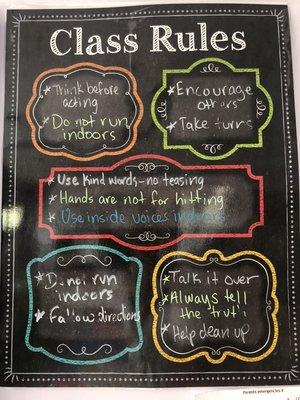 Class Rules
Think before
acting
Do not run
indoors
Encourage
others
Take turns
Use kind words-no teasing
Hands are not for hitting
Use inside voices indoors
Do not run
indoors
Follow directions
Talk it over
Always tell
the truth
Help clean up
Parents emergencies #